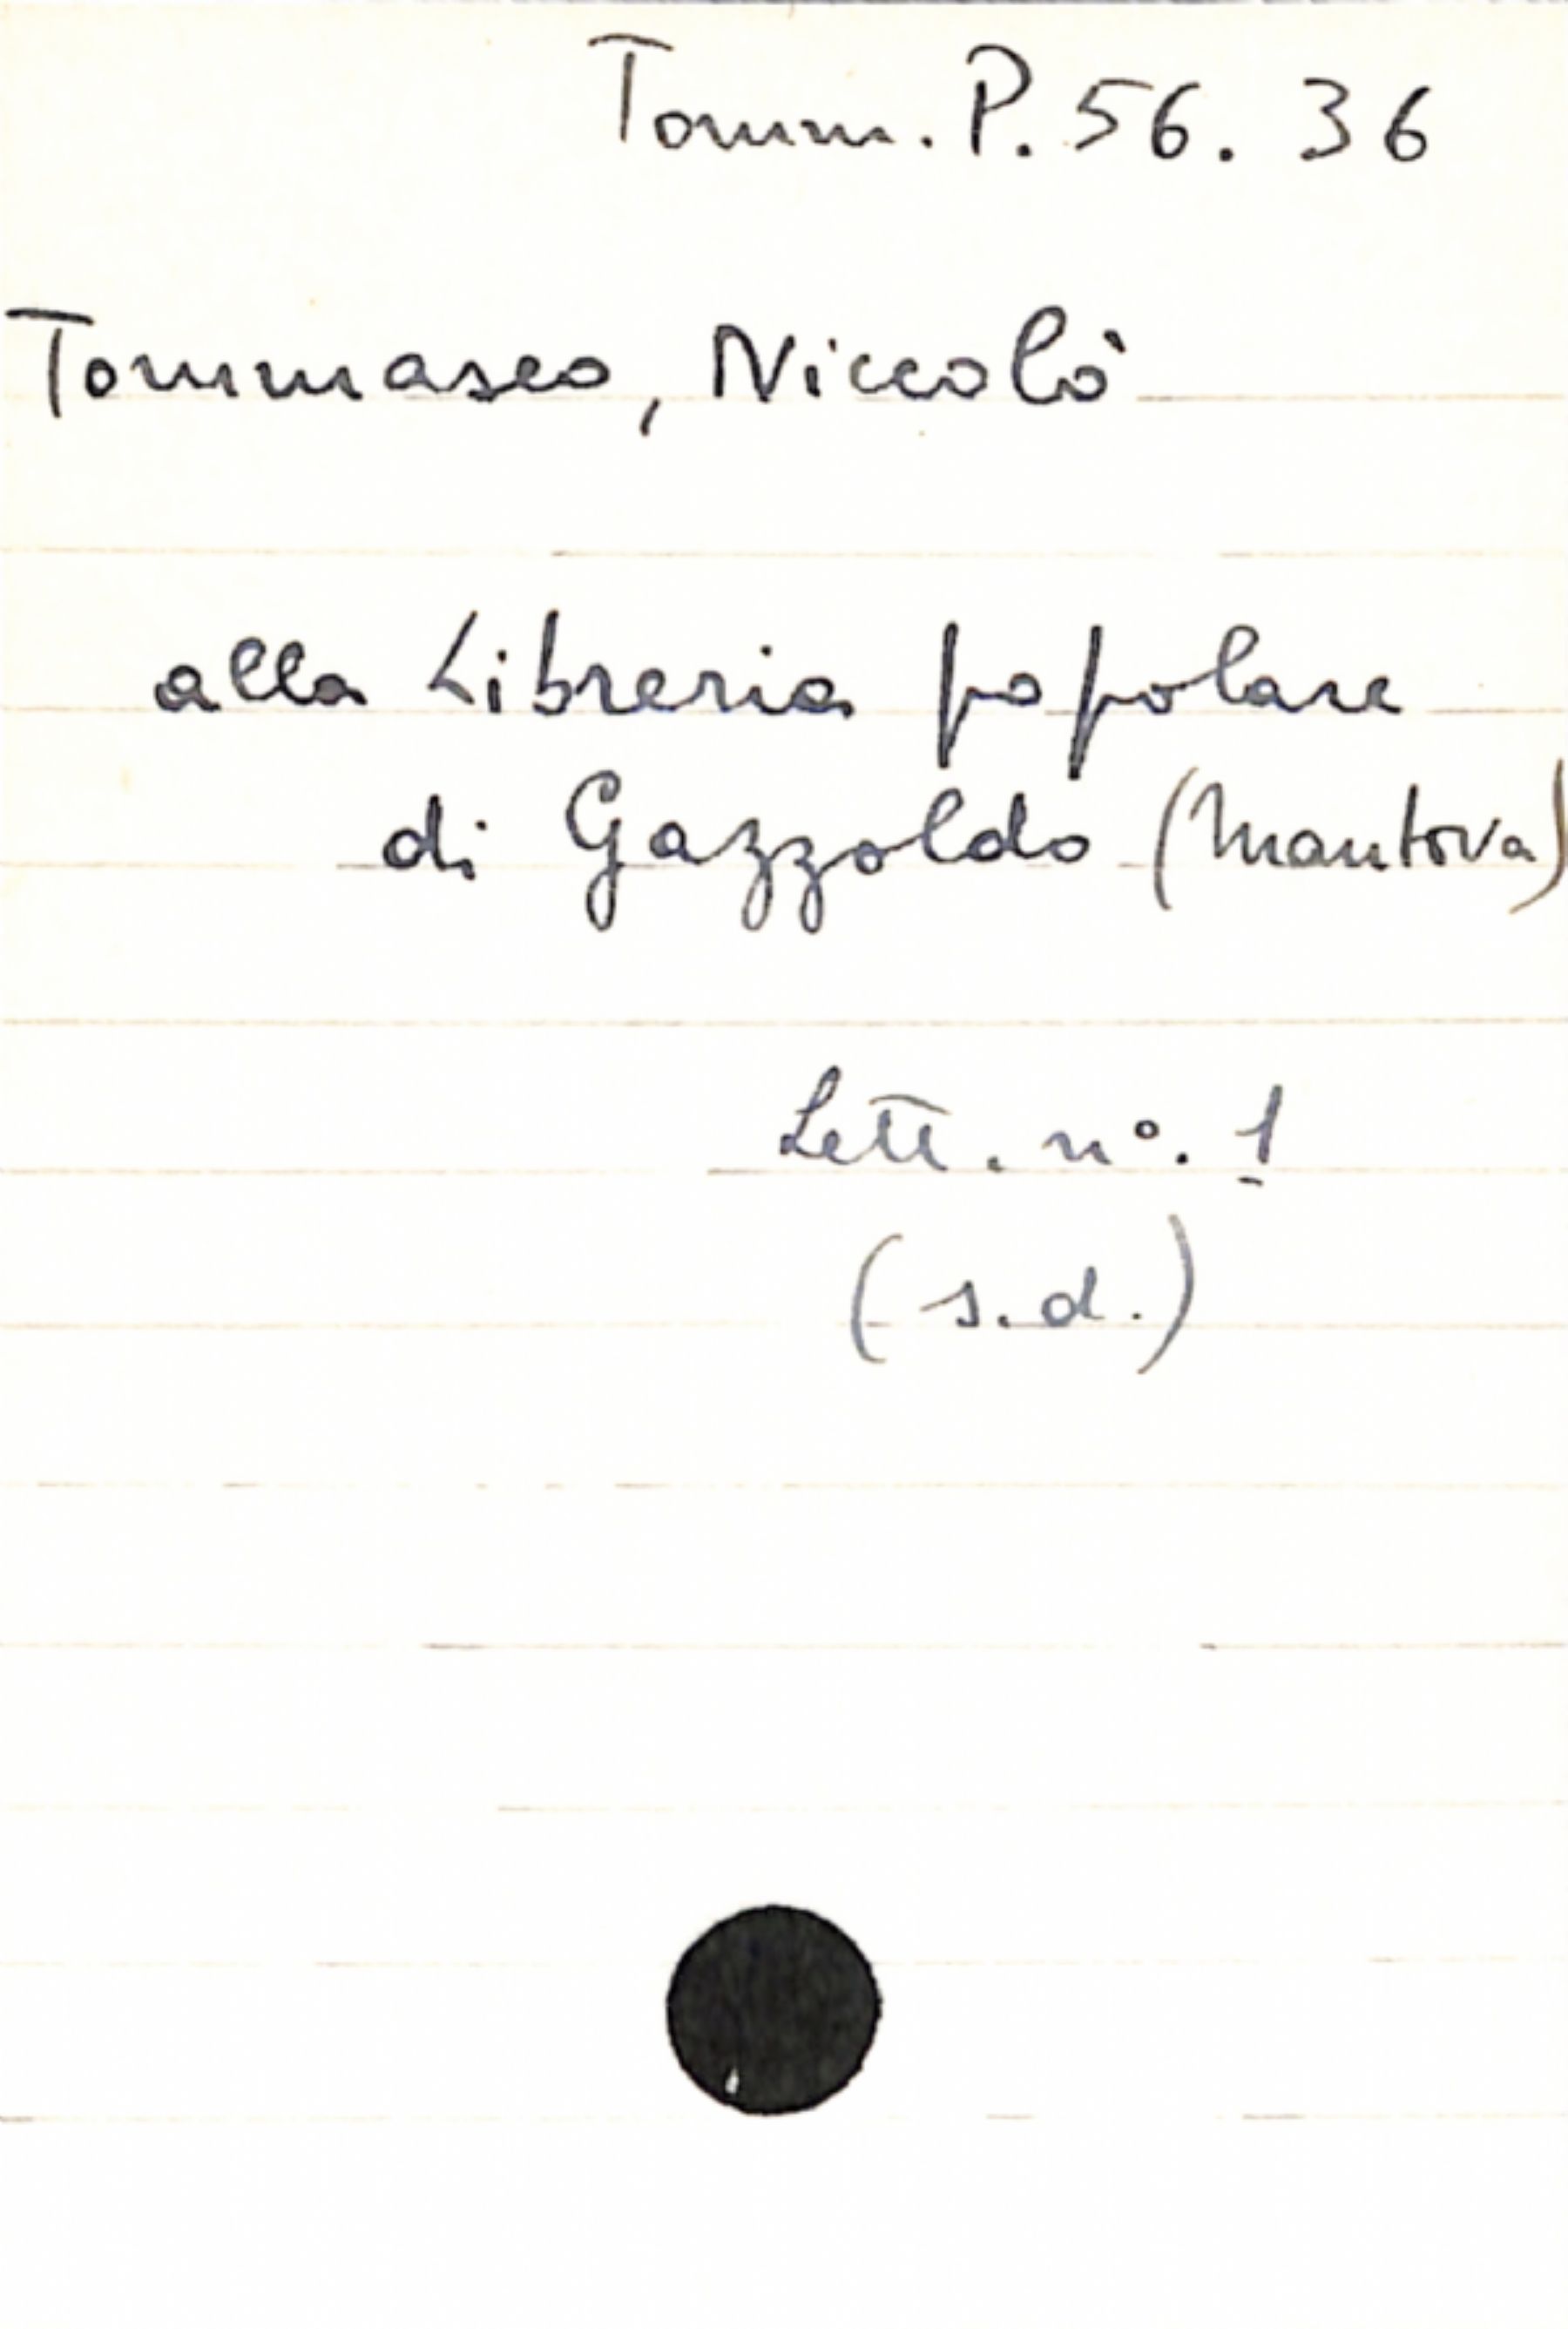 Tomm. P. 56. 36
Tommaseo, Niccolò
alla Libreria popolare
di Gazzoldo (Mantova)
Lett. n°. 1
(s.d.)